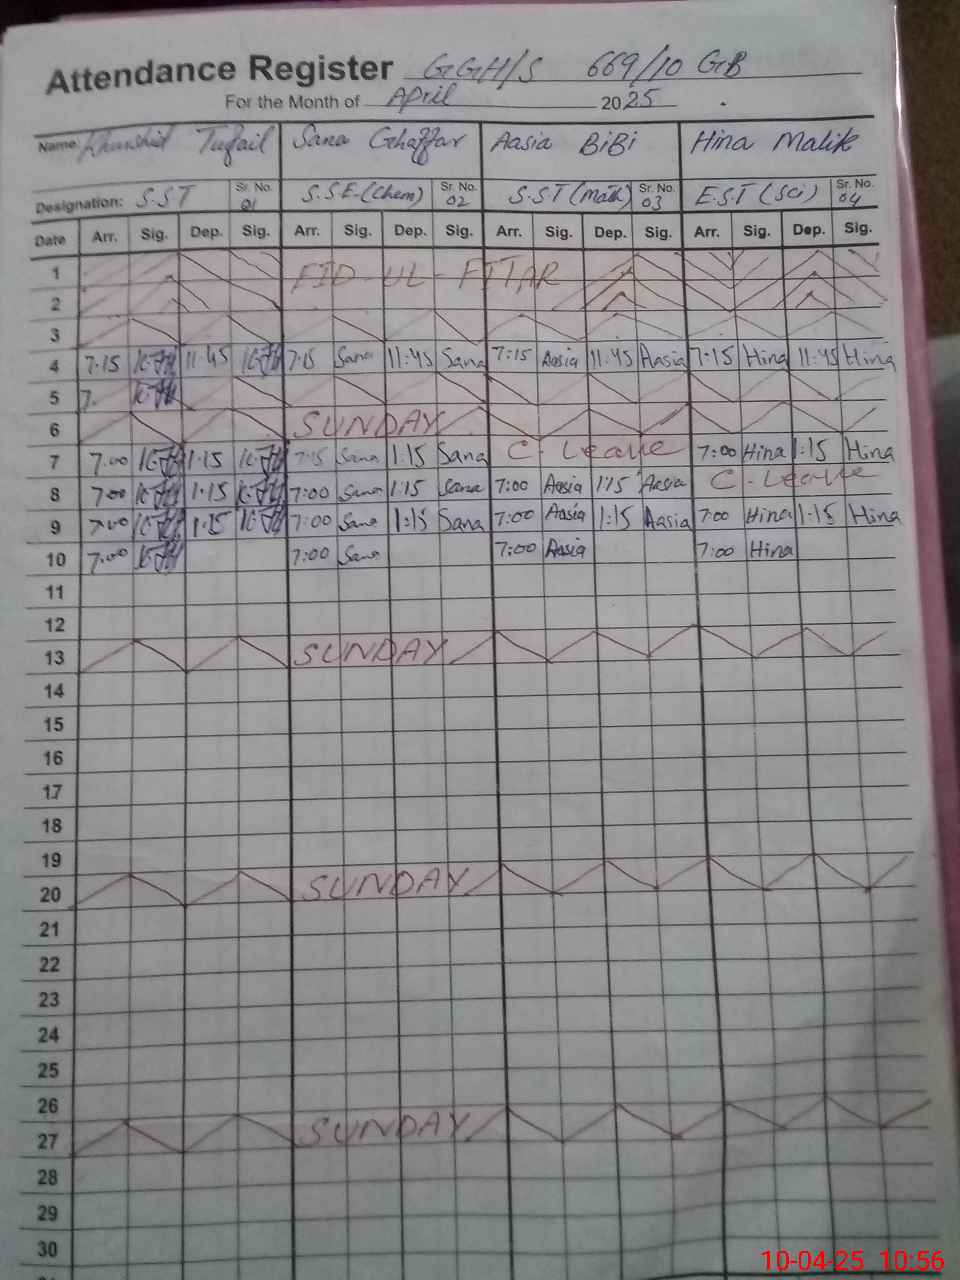 Attendance Register GGH/S 669/10 GB
For the Month of April 2025
Name: Khurshid Tufail Sana Ghaffar Aasia BiBi Hina Malik
Designation: S.S.T Sr. No. 01 S.S.E.(Chem) Sr. No. 02 S.S.T (Math) Sr. No. 03 E.S.T (Sci) Sr. No. 04
Date Arr. Sig. Dep. Sig. Arr. Sig. Dep. Sig. Arr. Sig. Dep. Sig. Arr. Sig. Dep. Sig.
1 EID-UL-FITAR
2
3
4 7:15 11:45 7:15 Sana 11:45 Sana 7:15 Aasia 11:45 Aasia 7:15 Hina 11:45 Hina
5 7.
6 SUNDAY
7 7:00 1:15 7:15 Sana 1:15 Sana C. Leave 7:00 Hina 1:15 Hina
8 7:00 1:15 7:00 Sana 1:15 Sana 7:00 Aasia 1:15 Aasia C. Leave
9 7:00 1:15 7:00 Sana 1:15 Sana 7:00 Aasia 1:15 Aasia 7:00 Hina 1:15 Hina
10 7:00 7:00 Sana 7:00 Aasia 7:00 Hina
11
12
13 SUNDAY
14
15
16
17
18
19
20 SUNDAY
21
22
23
24
25
26
27 SUNDAY
28
29
30
10-04-25 10:56